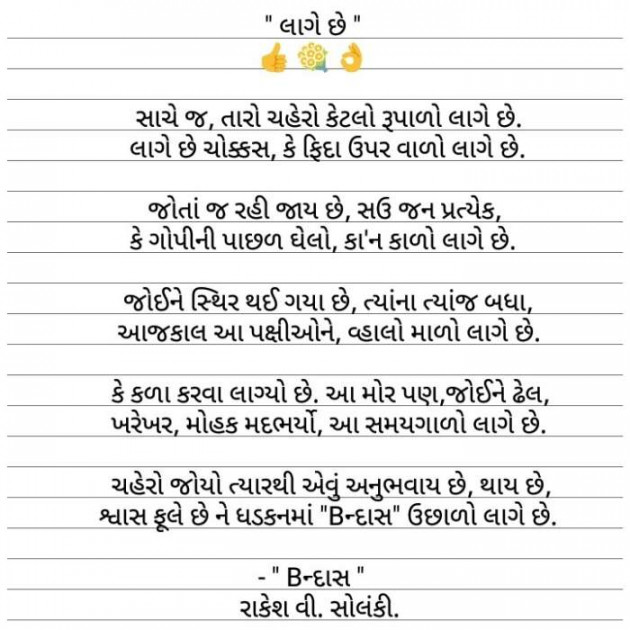 " લાગે છે "
👍 💐 👌
સાચે જ, તારો ચહેરો કેટલો રૂપાળો લાગે છે.
લાગે છે ચોક્કસ, કે ફિદા ઉપર વાળો લાગે છે.
જોતાં જ રહી જાય છે, સઉ જન પ્રત્યેક,
કે ગોપીની પાછળ ઘેલો, કા'ન કાળો લાગે છે.
જોઈને સ્થિર થઈ ગયા છે, ત્યાંના ત્યાંજ બધા,
આજકાલ આ પક્ષીઓને, વ્હાલો માળો લાગે છે.
કે કળા કરવા લાગ્યો છે. આ મોર પણ,જોઈને ઢેલ,
ખરેખર, મોહક મદભર્યો, આ સમયગાળો લાગે છે.
ચહેરો જોયો ત્યારથી એવું અનુભવાય છે, થાય છે,
શ્વાસ ફૂલે છે ને ધડકનમાં "Bન્દાસ" ઉછાળો લાગે છે.
- " Bન્દાસ "
રાકેશ વી. સોલંકી.